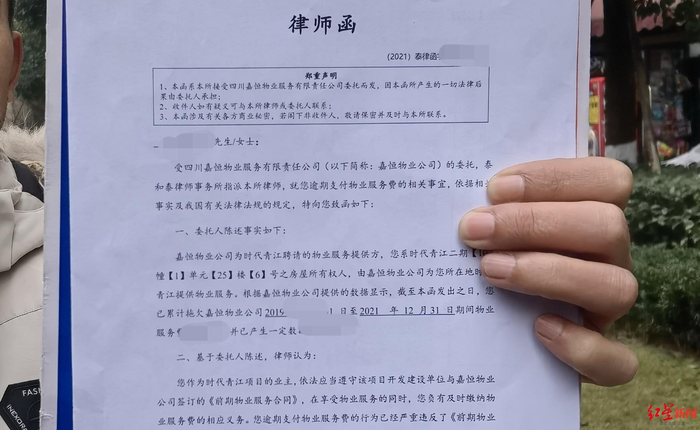 律师函
(2021)泰律函
郑重声明
1、本函系本所接受四川嘉恒物业服务有限责任公司委托而发，因本函所产生的一切法律后
果由委托人承担；
2、收件人如有疑义可与本所律师或委托人联系；
3、本函涉及有关各方商业秘密，若阁下非收件人，敬请保密并及时与本所联系。
先生/女士：
受四川嘉恒物业服务有限责任公司（以下简称：嘉恒物业公司）的委托，泰
和泰律师事务所指派本所律师，就您逾期支付物业服务费的相关事宜，依据相
事实及我国有关法律法规的规定，特向您致函如下：
一、委托人陈述事实如下：
嘉恒物业公司为时代青江聘请的物业服务提供方，您系时代青江二期【10
幢【1】单元【25】楼【6】号之房屋所有权人，由嘉恒物业公司为您所在地时
青江提供物业服务。根据嘉恒物业公司提供的数据显示，截至本函发出之日，您
已累计拖欠嘉恒物业公司2019 1日至2021 年 12 月 31 日期间物业
服务 并已产生一定数
二、基于委托人陈述，律师认为：
您作为时代青江项目的业主，依法应当遵守该项目开发建设单位与嘉恒物业
公司签订的《前期物业服务合同》，在享受物业服务的同时，您负有及时缴纳物
业服务费的相应义务。您逾期支付物业服务费的行为已经严重违反了《前期物业
FASH
红星新闻